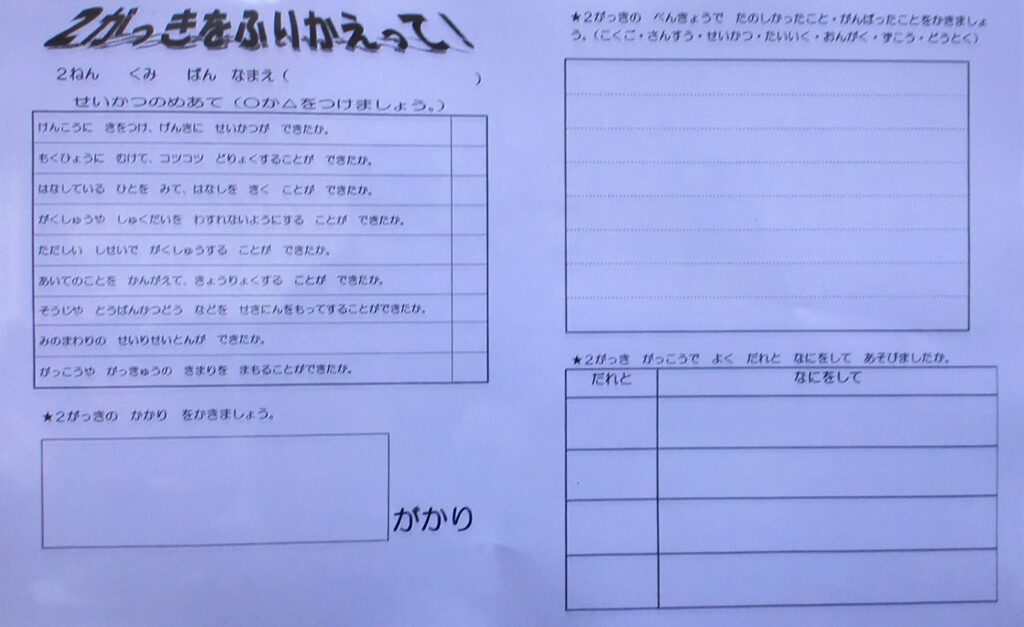 2がっきをふりかえって！
2ねん　くみ　ばん　なまえ（　　　）
せいかつのめあて（○か△をつけましょう。）
けんこうに　きをつけ、げんきに　せいかつが　できたか。
もくひょうに　むけて、コツコツ　どりょくすることが　できたか。
はなしている　ひとを　みて、はなしを　きく　ことが　できたか。
がくしゅうや　しゅくだいを　わすれないようにする　ことが　できたか。
ただしい　しせいで　がくしゅうする　ことが　できたか。
あいてのことを　かんがえて、きょうりょくする　ことが　できたか。
そうじや　とうばんかつどう　などを　せきにんをもってすることができたか。
みのまわりの　せいりせいとんが　できたか。
がっこうや　がっきゅうの　きまりを　まもることができたか。
★2がっきの　かかり　をかきましょう。
がかり
★2がっきの　べんきょうで　たのしかったこと・がんばったことをかきましょ
う。（こくご・さんすう・せいかつ・たいいく・おんがく・ずこう・どうとく）
★2がっき　がっこうで　よく　だれと　なにをして　あそびましたか。
だれと　なにをして